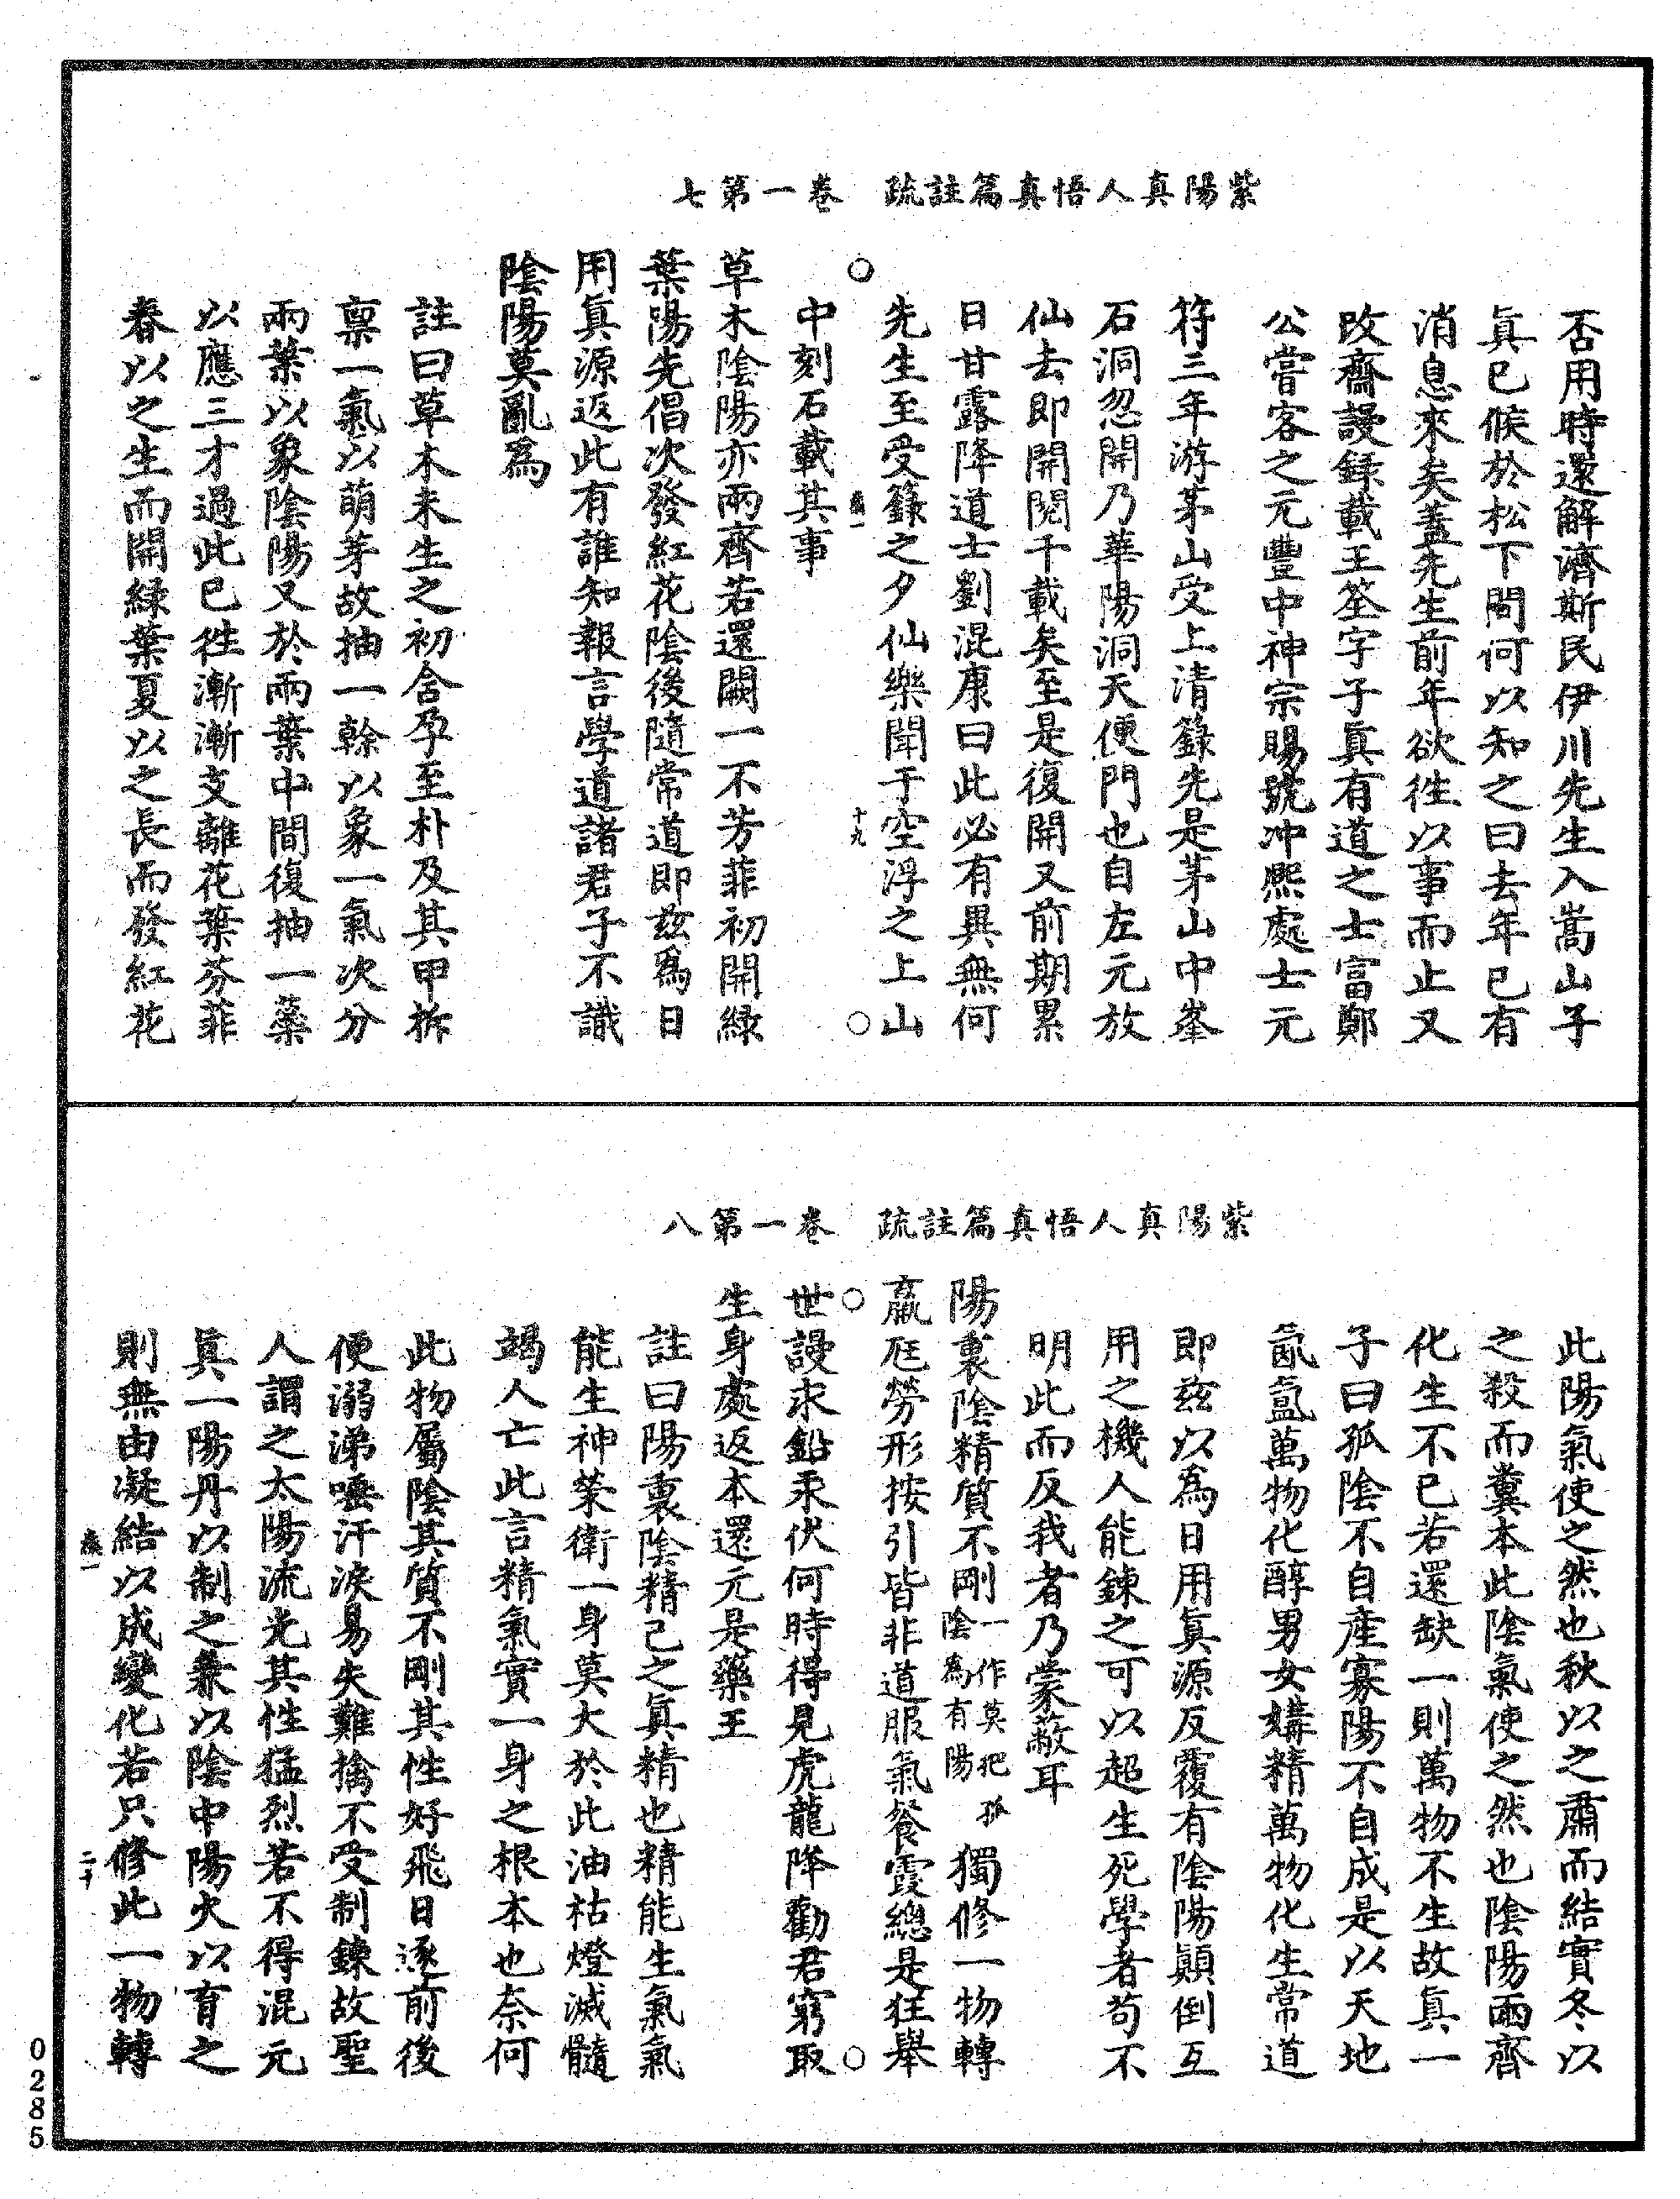 紫陽真人悟真篇註疏　卷一第七
否用時還解濟斯民伊川先生入嵩山子
眞已候於松下問何以知之曰去年已有
消息來矣蓋先生前年欲徃以事而止又
攺齋謾録載王筌字子眞有道之士富鄭
公嘗客之元豐中神宗賜號冲熈處士元
符三年游茅山受上清籙先是茅山中峯
石洞忽開乃華陽洞天便門也自左元放
仙去即開閱千載矣至是復開又前期累
日甘露降道士劉混康曰此必有異無何
先生至受籙之夕仙樂聞于空浮之上山
中刻石載其事
十九
草木陰陽亦兩齊若還闕一不芳菲初開綠
葉陽先倡次發紅花陰後隨常道即兹爲日
用眞源返此有誰知報言學道諸君子不識
陰陽莫亂爲
註曰草木未生之初含孕至朴及其甲拆
禀一氣以萌芽故抽一榦以象一氣次分
兩葉以象陰陽又於兩葉中間復抽一蘂
以應三才過此已徃漸漸支離花葉芬菲
春以之生而開綠葉夏以之長而發紅花
紫陽真人悟真篇註疏　卷一第八
此陽氣使之然也秋以之肅而結實冬以
之殺而糞本此陰氣使之然也陰陽兩齊
化生不已若還缺一則萬物不生故真一
子曰孤陰不自產寡陽不自成是以天地
氤氳萬物化醇男女媾精萬物化生常道
即兹以爲日用眞源反覆有陰陽顛倒互
用之機人能鍊之可以超生死學者苟不
明此而反我者乃蒙蔽耳
陽裏陰精質不剛一作莫把孤陰爲有陽獨修一物轉
羸尫勞形按引皆非道服氣餐霞總是狂舉
世謾求鉛汞伏何時得見虎龍降勸君窮取
生身處返本還元是藥王
註曰陽裏陰精己之眞精也精能生氣氣
能生神榮衛一身莫大於此油枯燈滅髓
竭人亡此言精氣實一身之根本也奈何
此物屬陰其質不剛其性好飛日逐前後
便溺涕唾汗淚易失難擒不受制鍊故聖
人謂之太陽流光其性猛烈若不得混元
眞一陽丹以制之兼以陰中陽火以育之
則無由凝結以成變化若只修此一物轉
二十
0285